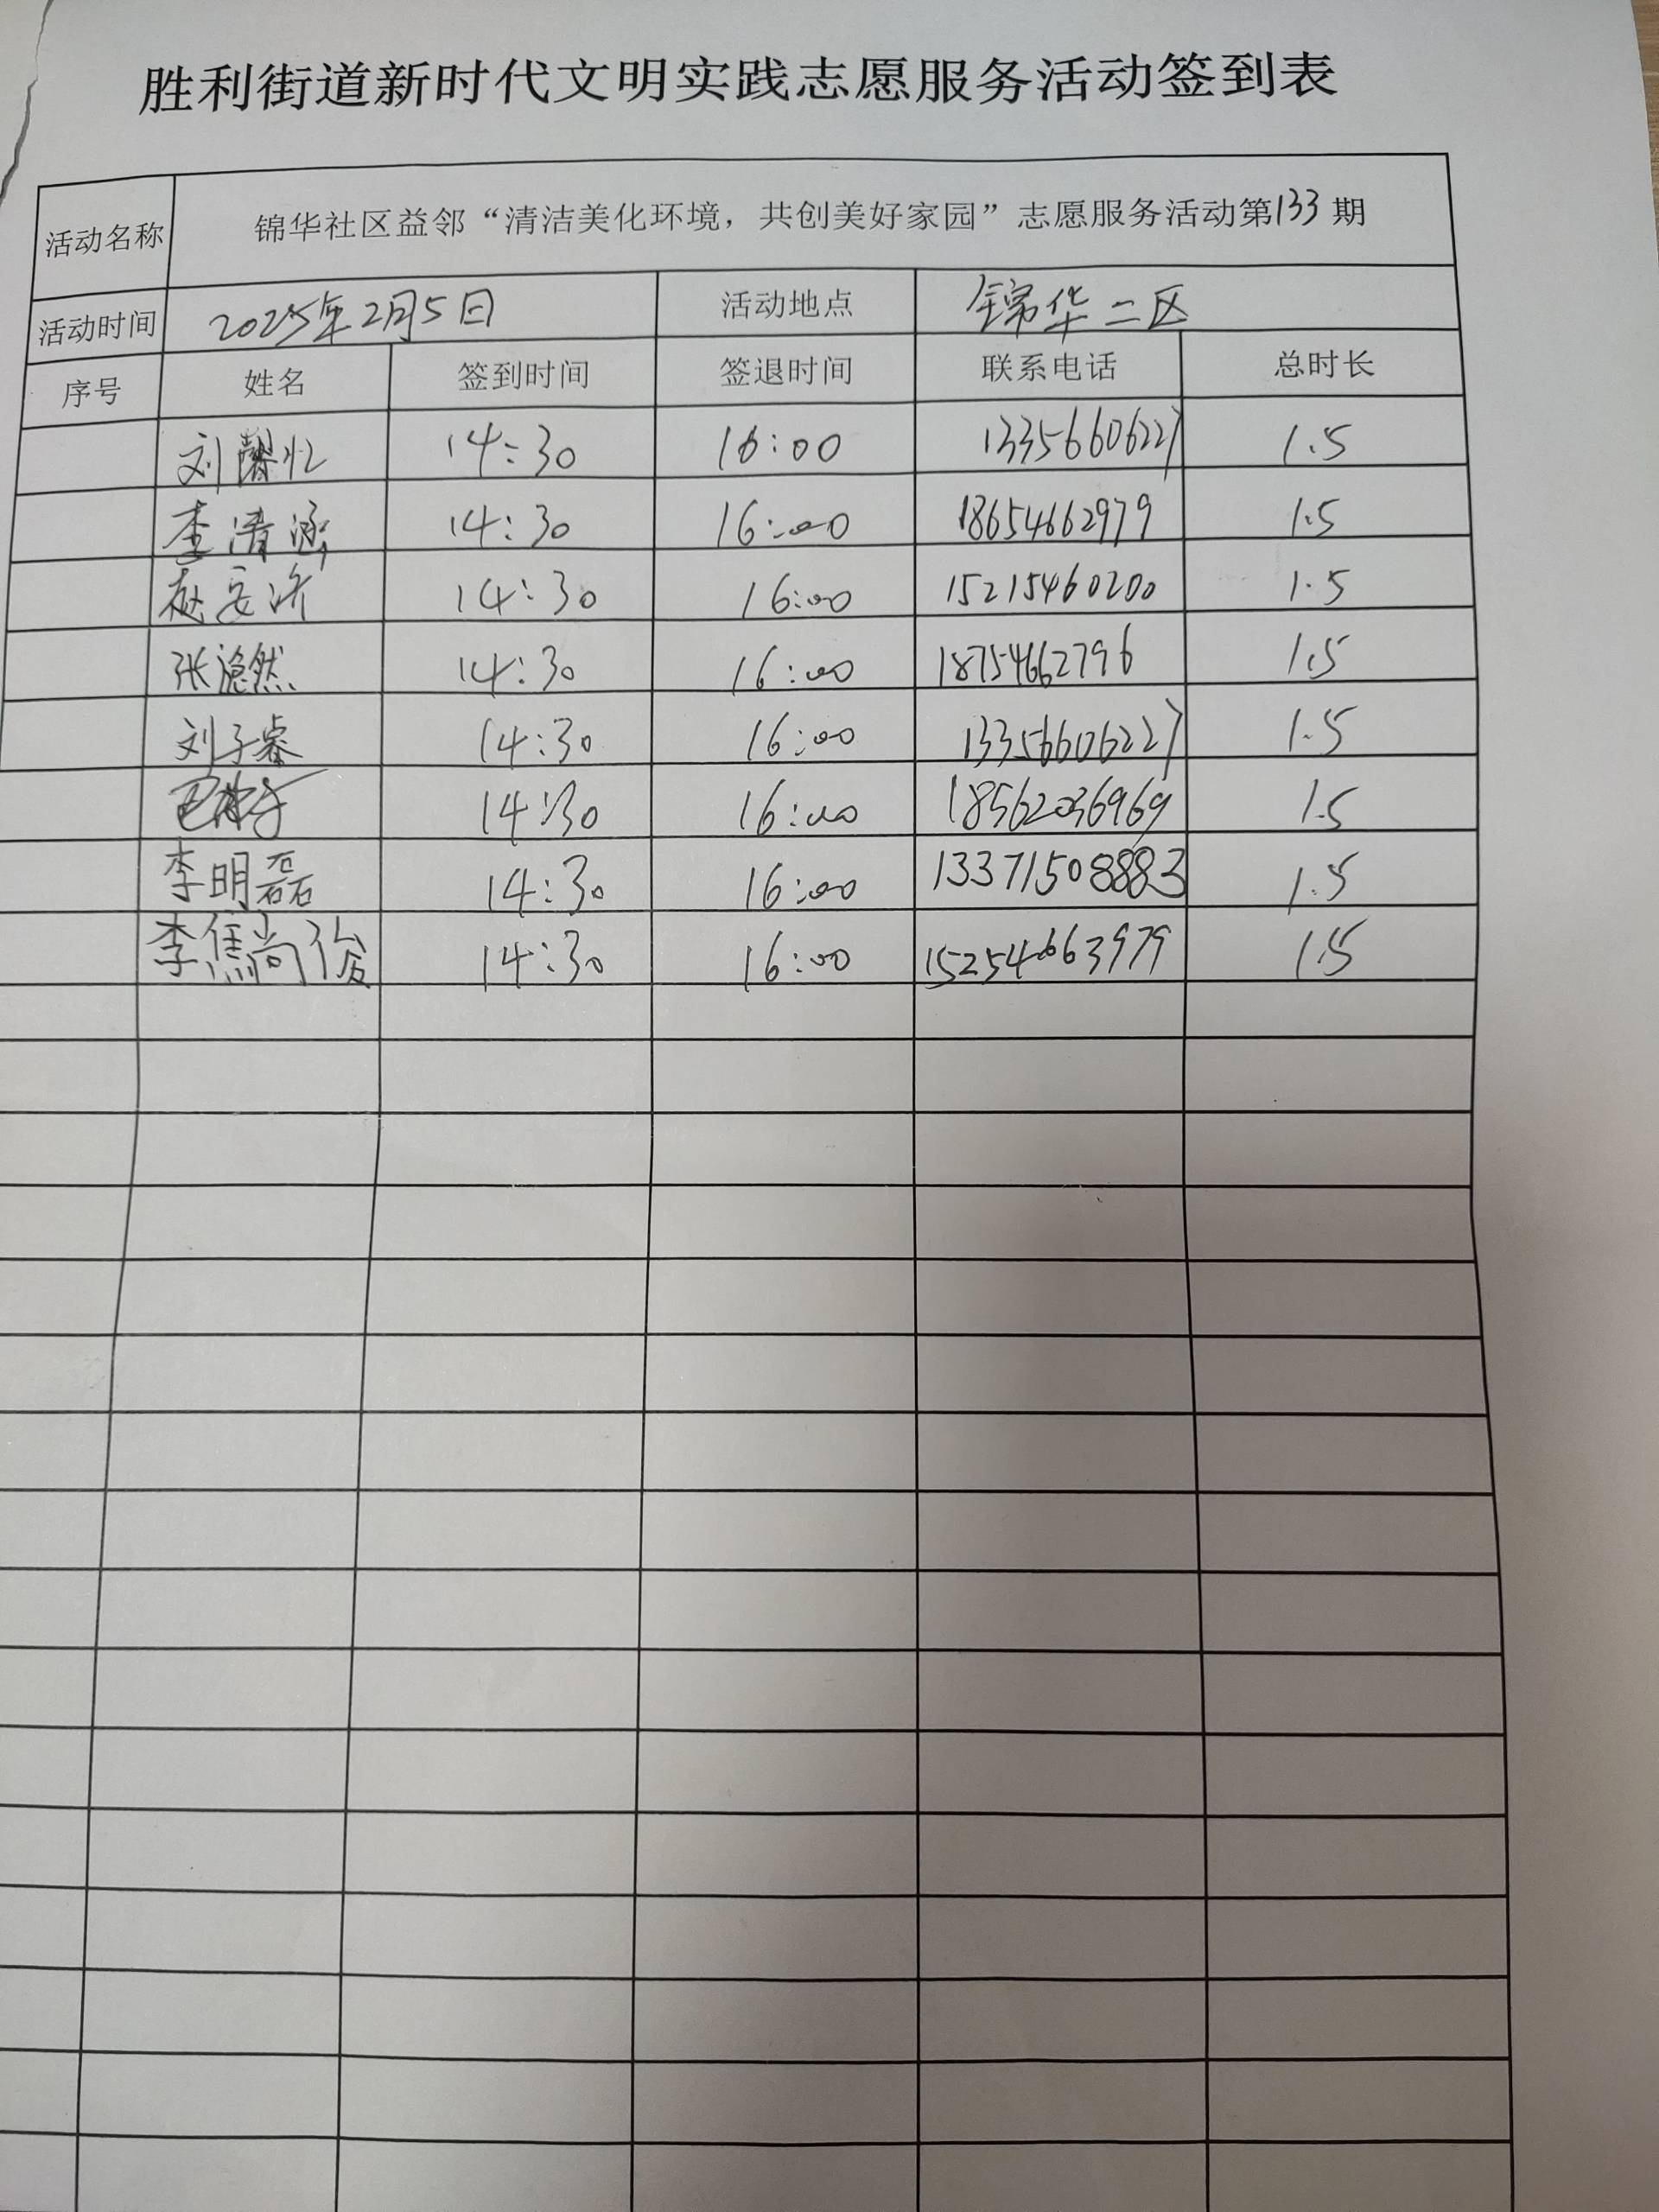 胜利街道新时代文明实践志愿服务活动签到表
活动名称 锦华社区益邻“清洁美化环境，共创美好家园”志愿服务活动第133期
活动时间 2025年2月5日 活动地点 锦华二区
序号 姓名 签到时间 签退时间 联系电话 总时长
刘馨忆 14:30 16:00 13356606227 1.5
李清涵 14:30 16:00 18654662979 1.5
赵安济 14:30 16:00 15215460200 1.5
张旖然 14:30 16:00 18754662796 1.5
刘子睿 14:30 16:00 13356606227 1.5
14:30 16:00 18562036969 1.5
李明磊 14:30 16:00 13371508883 1.5
李焦尚俊 14:30 16:00 15254663979 1.5